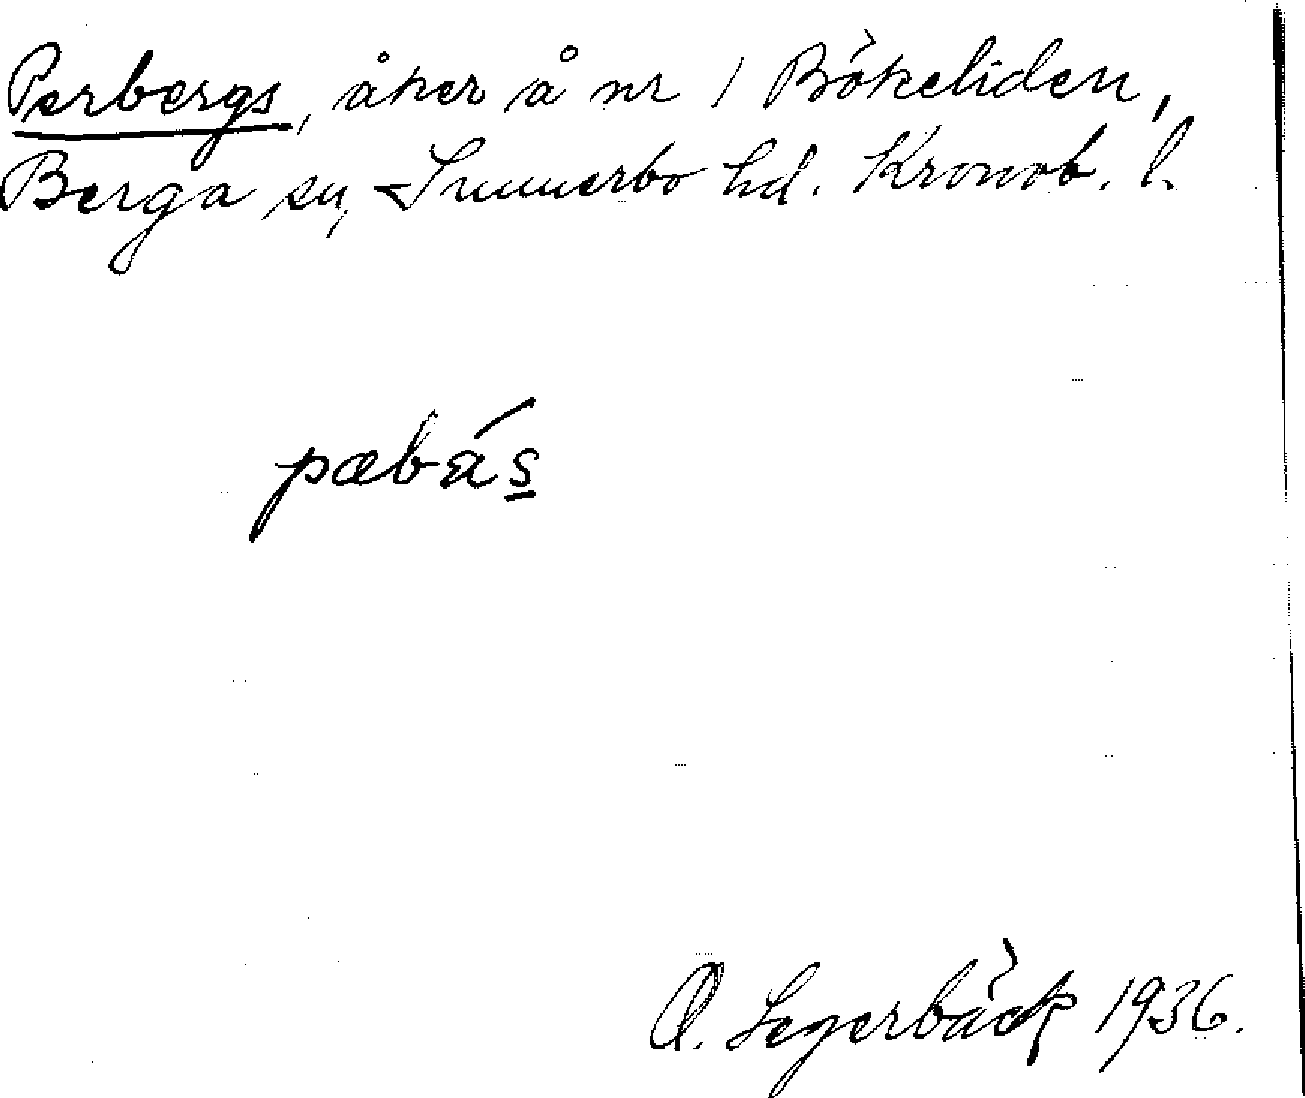 Perbergs, åker å nr 1 Bökeliden,
Berga sn, Sunnerbo hd. Kronob. l.
pæbás
O. Segerbäck 1936.